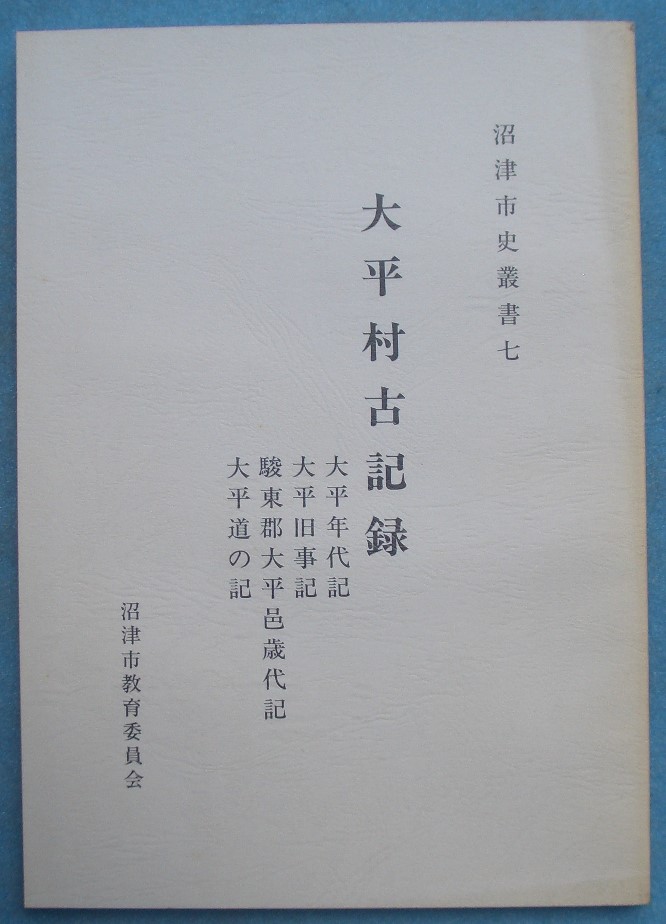 沼津市史叢書七
大平村古記録
大平年代記
大平旧事記
駿東郡大平邑歳代記
大平道の記
沼津市教育委員会